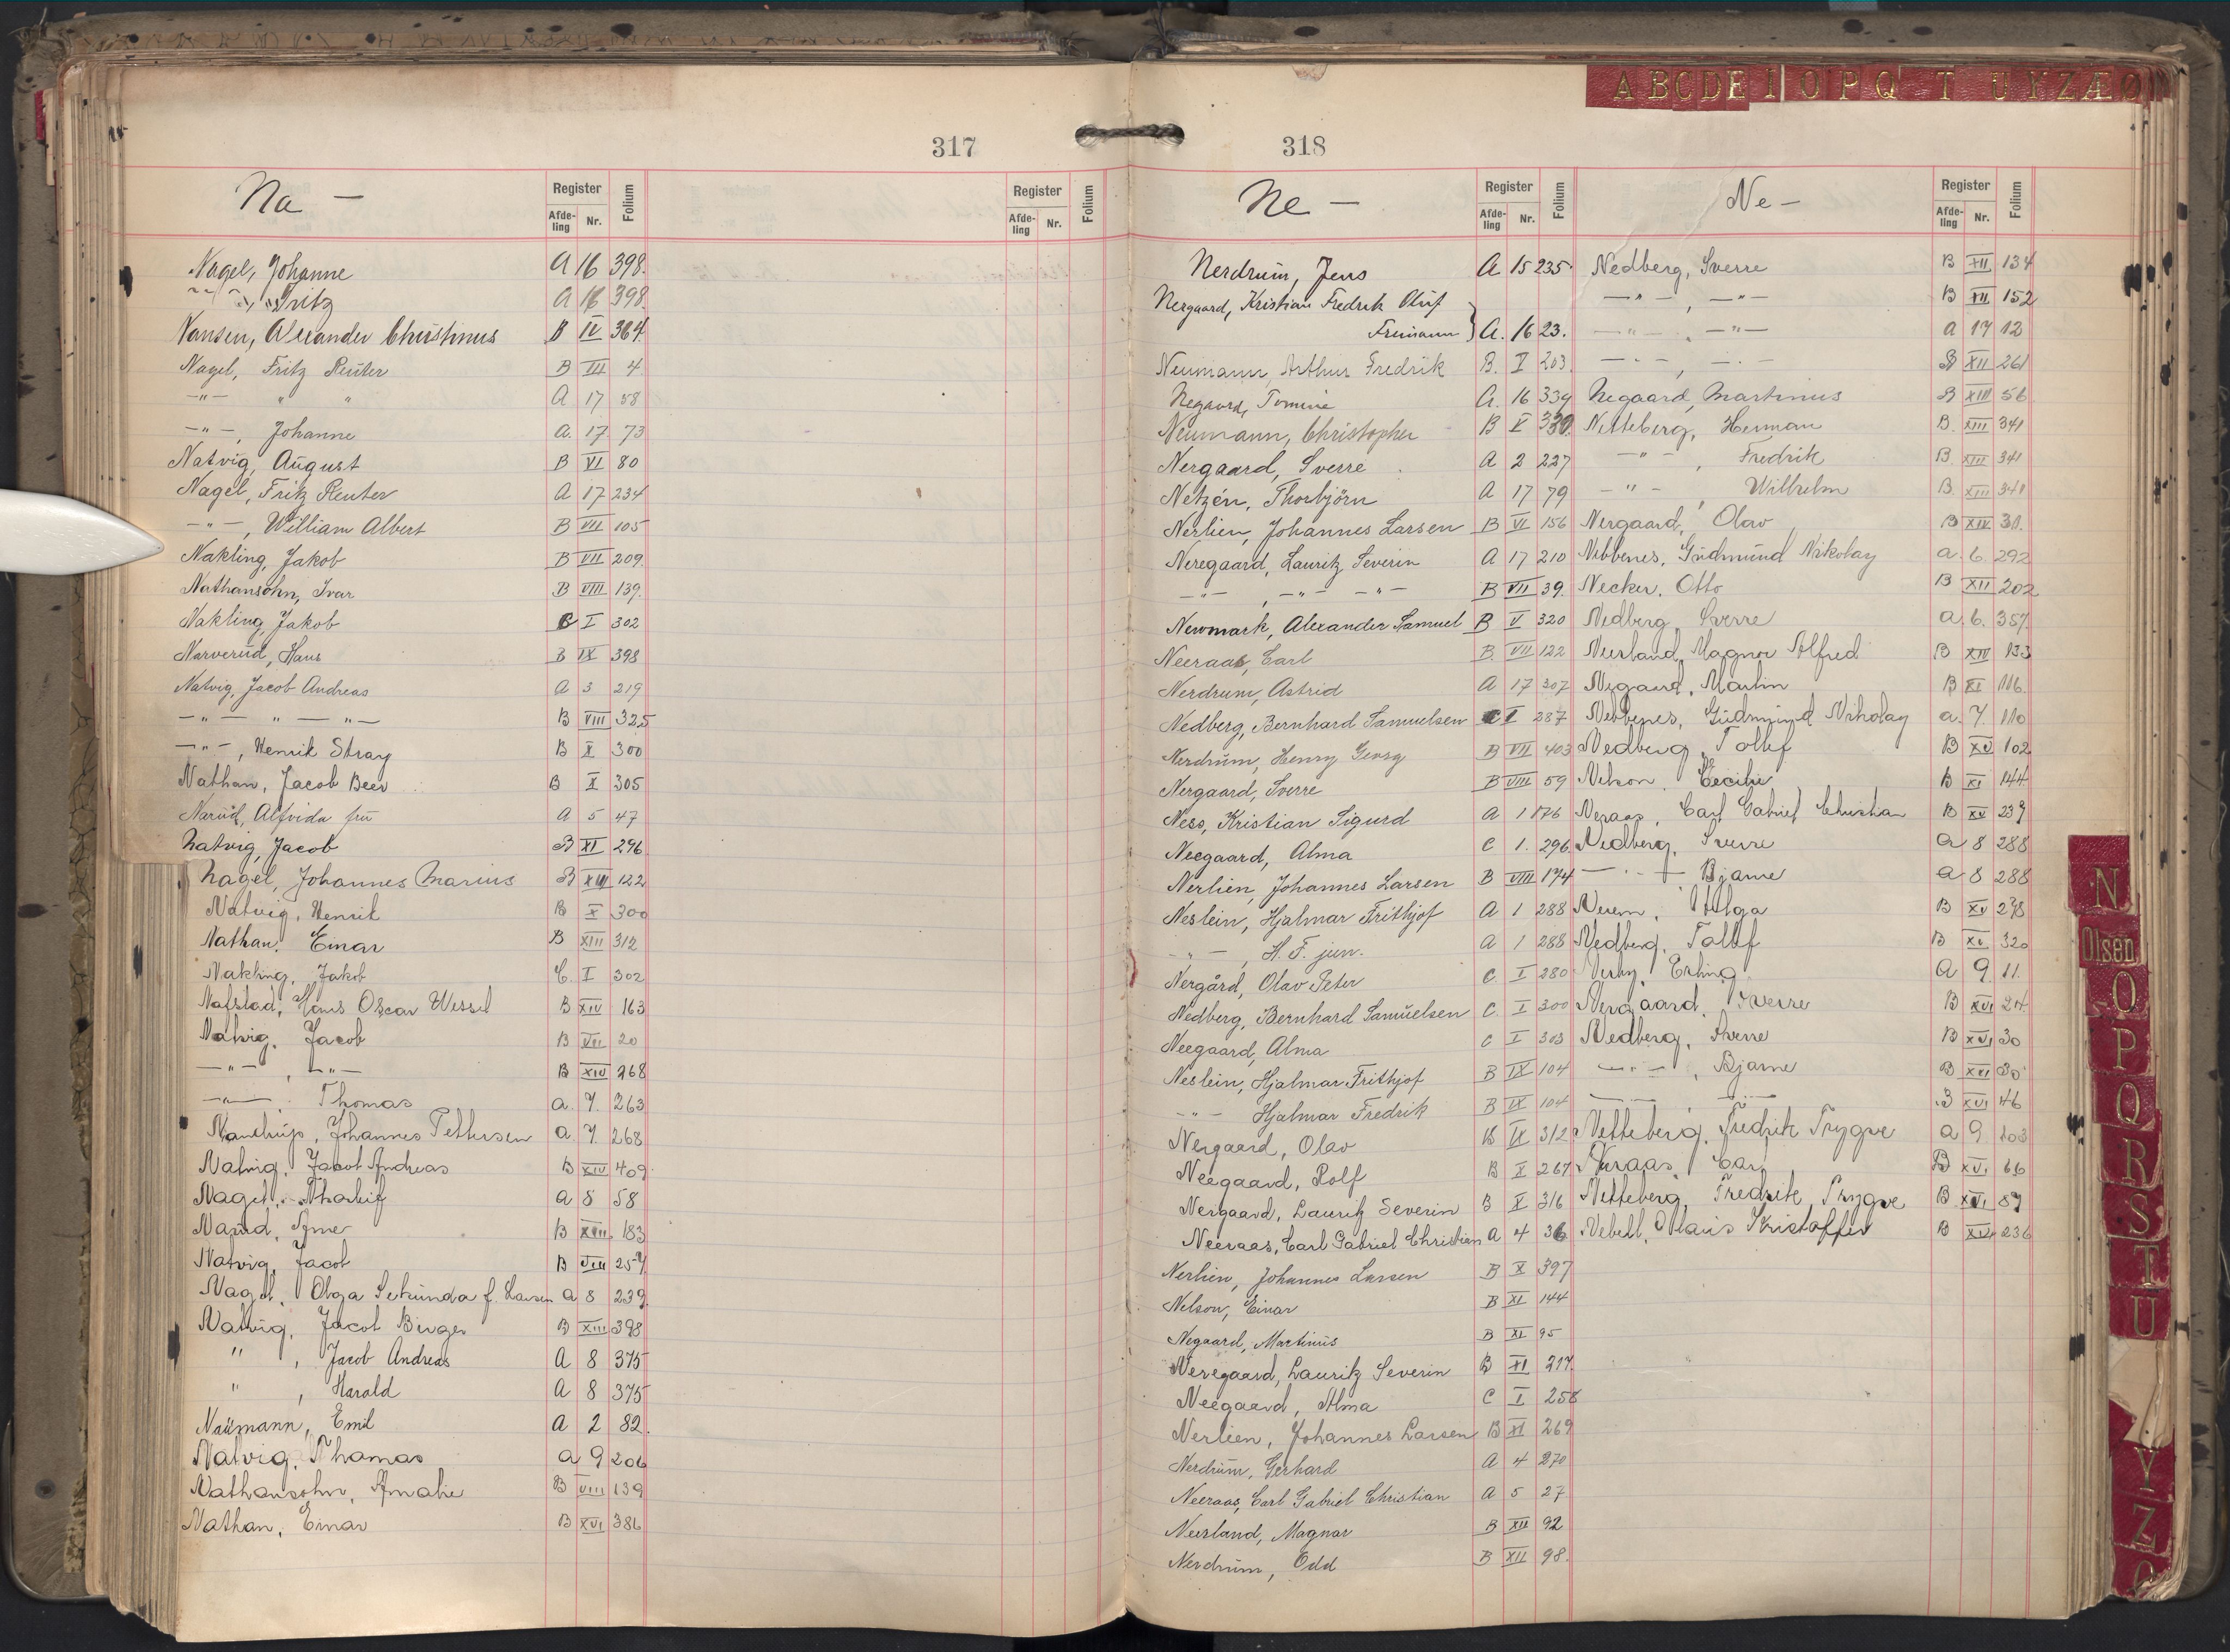 A B C D E I O P Q T U Y Z Æ Ø
317
Na —
Register
Afde-
ling
Nr.
Folium
Register
Afde-
ling
Nr.
Folium
Nagel, Johanne A 16 398.
~ " ~, Fritz A 16 398.
Nansen, Alexander Christinus B IV 364.
Nagel, Fritz Reuter B III 4
— " — " " A 17 58
— " —, Johanne A. 17 73
Natvig, August B VI 80
Nagel, Fritz Reuter A 17 234
— " —, William Albert B VII 105
Nakling, Jakob B VII 209.
Nathansohn, Ivar B VIII 139.
Nakling, Jakob C I 302
Narverud, Hans B IX 398
Natvig, Jacob Andreas A 3 219
— " — " — " — B VIII 325
— " —, Henrik Stray B X 300
Nathan, Jacob Beer B X 305
Narud, Alfvida fru A 5 47
Natvig, Jacob B XI 296
Nagel, Johannes Marius B XIII 122
Natvig, Henrik B X 300
Nathan, Einar B XIII 312
Nakling, Jakob C. I 302
Nafstad, Hans Oscar Wessel B XIV 163
Natvig, Jacob B VII 20
— " —, — " — B XIV 268
— " —, Thomas a. 7. 263
Nandrup, Johannes Pettersen a. 7. 268
Natvig, Jacob Andreas B XIV 409
Nagel, Thorleif a 8 58
Narud, Arne B XIII 183
Natvig, Jacob B VIII 257
Nagel, Olga Sekunda f. Larsen a 8 239.
Natvig, Jacob Birger B XIII 398
", Jacob Andreas A 8 375
", Harald A 8 375
Naumann, Emil A 2 82.
Natvig, Thomas a 9 206
Nathansohn, Amalie B VIII 139
Nathan, Einar B XVI 386
318
Ne —
Register
Afde-
ling
Nr.
Folium
Nerdrum, Jens A 15 235
Nergaard, Kristian Fredrik Oluf
Freimann } A. 16 23.
Neumann, Arthur Fredrik B. V 203.
Negaard, Tomine A. 16 339
Neumann, Christopher B V 330.
Nergaard, Sverre A 2 227
Netzén, Thorbjörn A 17 79
Nerlien, Johannes Larsen B VI 156
Neregaard, Lauritz Severin A 17 210
— " —, — " — — " — B VII 39.
Newmark, Alexander Samuel B V 320
Neeraas, Carl B. VII 122
Nerdrum, Astrid A 17 307
Nedberg, Bernhard Samuelsen C I 287
Nerdrum, Henry Georg B VII 403
Nergaard, Sverre B VIII 59
Ness, Kristian Sigurd A 1 176
Neegaard, Alma C 1. 296.
Nerlien, Johannes Larsen B VIII 174
Neslein, Hjalmar Frithjof A 1 288
— " —, H. F. jun. A 1 288
Nergård, Olav Peter C. I 280
Nedberg, Bernhard Samuelsen C. I 300
Neegaard, Alma C I 303
Neslein, Hjalmar Frithjof B IX 104
— " — Hjalmar Fredrik B IX 104
Nergaard, Olav B IX 312
Neegaard, Rolf B X 267
Nergaard, Lauritz Severin B X 316
Neeraas, Carl Gabriel Christian A 4 36
Nerlien, Johannes Larsen B X 397
Nelson, Einar B XI 144
Negaard, Martinus B XI 95
Neregaard, Lauritz Severin B XI 217.
Neegaard, Alma C I 258
Nerlien, Johannes Larsen B XI 269
Nerdrum, Gerhard A 4 270
Neeraas, Carl Gabriel Christian A 5 27
Neerland, Magnar B XII 92
Nerdrum, Odd B XII 98.
Ne —
Register
Afde-
ling
Nr.
Folium
Nedberg, Sverre B XII 134
— " —, — " — B XII 152
— " —, — " — a 17 12
— " —, — " — B XII 261
Negaard, Martinus B XIII 56
Netteberg, Herman B. XIII 341
— " —, Fredrik B. XIII 341
— " —, Wilhelm B. XIII 341
Nergaard, Olav B XIV 31.
Nebbenes, Gudmund Nikolay a. 6. 292
Necker, Otto B XII 202
Nedberg, Sverre a. 6. 357
Neerland, Magnor Alfred B XIV 133
Negaard, Martin B XI 116.
Nebbenes, Gudmund Nikolay a. 7. 110
Nedberg, Tollef B XV 102
Nelson, Cecilie B XI 144.
Neraas, Carl Gabriel Christian B XV 239
Nedberg, Sverre a 8 288
— " — Bjarne a 8 288
Neuem, Helga B XV 278
Nedberg, Tollef B XV. 320
Nerby, Erling a 9. 11.
Nergaard, Sverre B XVI 24.
Nedberg, Sverre B XVI 30
— " —, Bjarne B XVI 30
— " —, — " — B XVI 46
Netteberg, Fredrik Trygve a 9 103
Neraas, Carl B XVI 66
Netteberg, Fredrik Trygve B XVI 89
Nebell, Olaus Kristoffer B XIV 236
N
Olsen
O
P
Q
R
S
T
U
Y
Z